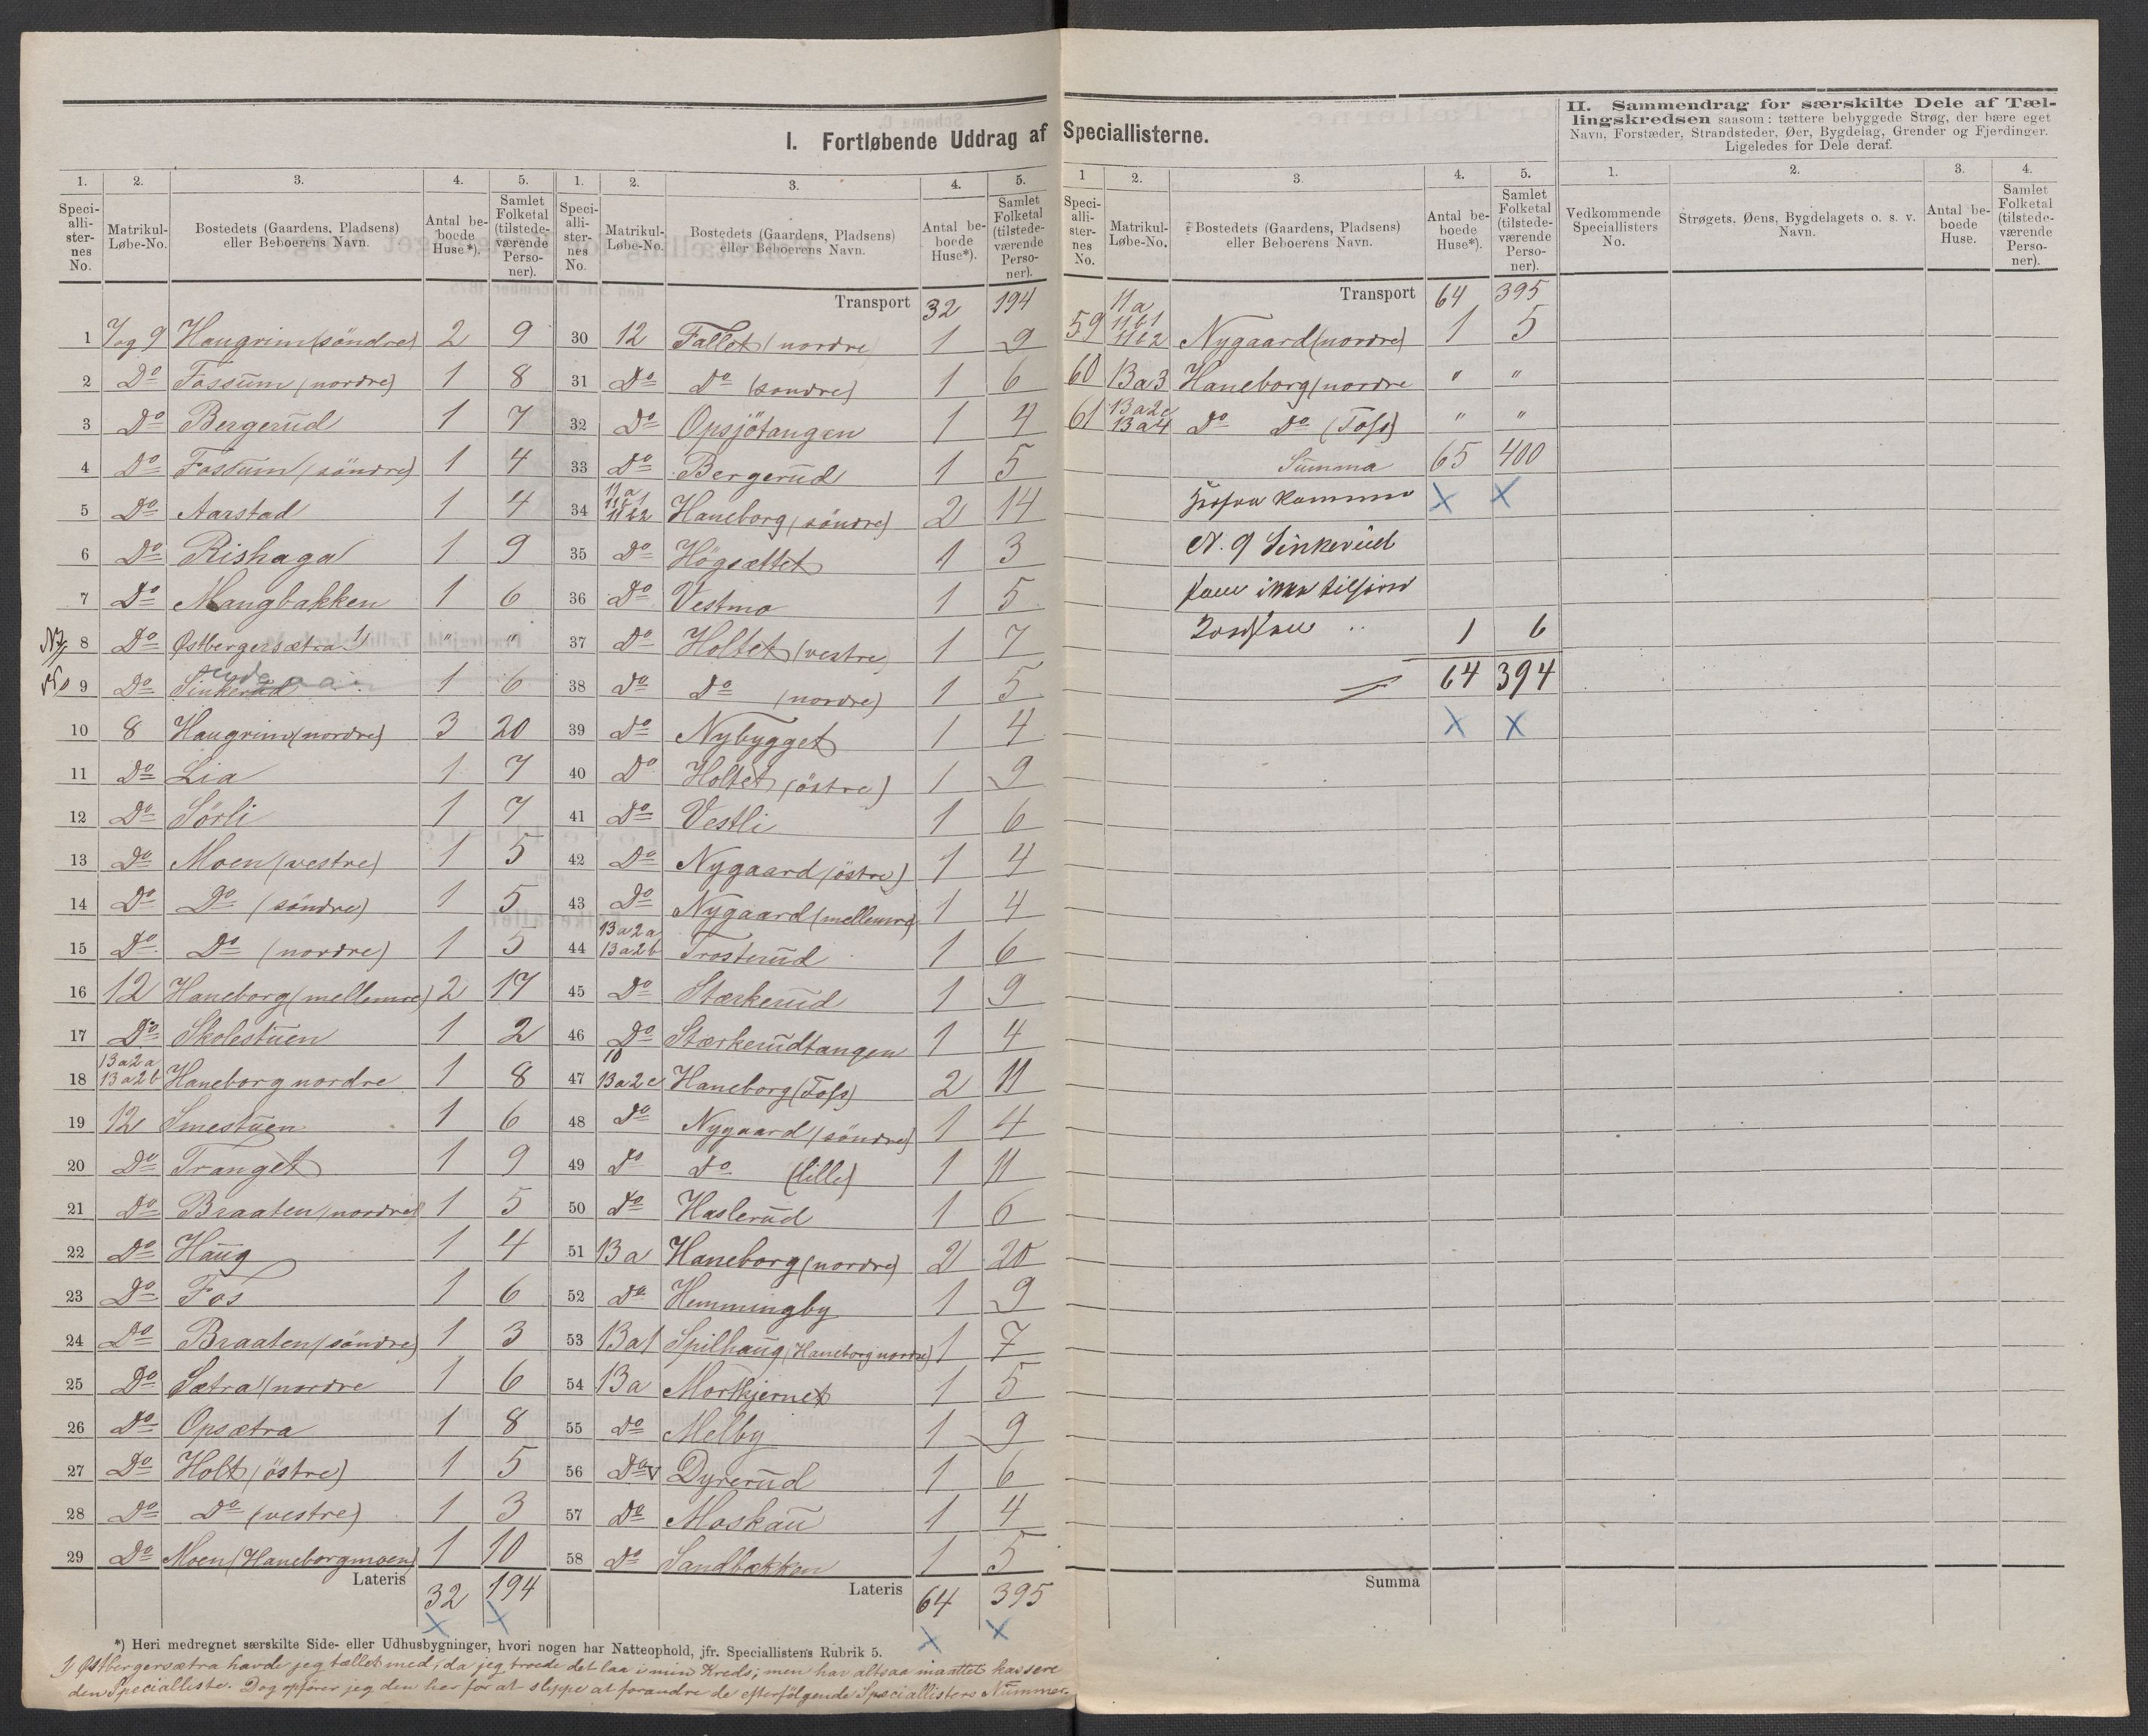 I. Fortløbende Uddrag af Speciallisterne.
II. Sammendrag for særskilte Dele af Tæl-
lingskredsen saasom: tættere bebyggede Strøg, der bære eget
Navn, Forstæder, Strandsteder, Øer, Bygdelag, Grender og Fjerdinger.
Ligeledes for Dele deraf.
1. 2. 3. 4. 5.
Speci-alli-ster-nes No. Matrikul-Løbe-No. Bostedets (Gaardens, Pladsens) eller Beboerens Navn. Antal be-boede Huse*). Samlet Folketal (tilstede-værende Perso-ner).
1 7 og 9 Haugrim (söndre) 2 9
2 Do Fossum (nordre) 1 8
3 Do Bergerud 1 7
4 Do Fossum (söndre) 1 4
5 Do Aarstad 1 4
6 Do Rishaga 1 9
7 Do Mangbakken 1 6
8 Do Østbergersætra 1) " "
9 Do Sinkerud 1 6
10 8 Haugrim (nordre) 3 20
11 Do Lia 1 7
12 Do Sörli 1 7
13 Do Moen (vestre) 1 5
14 Do Do (söndre) 1 5
15 Do Do (nordre) 1 5
16 12 Haneborg (mellemre) 2 17
17 Do Skolestuen 1 2
18 13a2a 13a2b Haneborg nordre 1 8
19 12 Smestuen 1 6
20 Do Tranget 1 9
21 Do Braaten (nordre) 1 5
22 Do Haug 1 4
23 Do Fos 1 6
24 Do Braaten (söndre) 1 3
25 Do Sætra (nordre 1 6
26 Do Opsætra 1 8
27 Do Holt (östre) 1 5
28 Do Do (vestre) 1 3
29 Do Moen (Haneborgmoen) 1 10
Lateris 32 194
1. 2. 3. 4. 5.
Speci-alli-ster-nes No. Matrikul-Løbe-No. Bostedets (Gaardens, Pladsens) eller Beboerens Navn. Antal be-boede Huse*). Samlet Folketal (tilstede-værende Perso-ner).
Transport 32 194
30 12 Fallet (nordre 1 9
31 Do Do (söndre) 1 6
32 Do Opsjötangen 1 4
33 Do Bergerud 1 5
34 11a 11b1 11b2 Haneborg (söndre) 2 14
35 Do Högsættet 1 3
36 Do Vestmo 1 5
37 Do Holtet (vestre) 1 7
38 Do Do (nordre) 1 5
39 Do Nybygget 1 4
40 Do Holtet (östre) 1 9
41 Do Vestli 1 6
42 Do Nygaard (östre) 1 4
43 Do Nygaard (mellemre) 1 4
44 13a2a 13a2b Trosterud 1 6
45 Do Stærkerud 1 9
46 Do Stærkerudtangen 1 4
47 10 13a2c Haneborg (Foss) 2 11
48 Do Nygaard (söndre) 1 4
49 Do Do (lille) 1 11
50 Do Haslerud 1 6
51 13a Haneborg (nordre) 2 20
52 Do Hemmingby 1 9
53 13a1 Spilhaug (Haneborg nordre) 1 7
54 13a Mortkjernet 1 5
55 Do Melby 1 9
56 Do v Dyrerud 1 6
57 Do Moskau 1 4
58 Do Sandbækken 1 5
Lateris 64 395
1 2. 3. 4. 5.
Speci-alli-ster-nes No. Matrikul-Løbe-No. Bostedets (Gaardens, Pladsens) eller Beboerens Navn. Antal be-boede Huse*). Samlet Folketal (tilstede-værende Perso-ner).
Transport 64 395
59 11a 11b1 11b2 Nygaard (nordre) 1 5
60 13a3 Haneborg (nordre " "
61 13a2c 13a4 Do Do (Foss) " "
Summa 65 400
N. 9 Sinkerud
1 6
64 394
Summa
1. 2. 3. 4.
Vedkommende Speciallisters No. Strøgets, Øens, Bygdelagets o. s. v. Navn. Antal be-boede Huse. Samlet Folketal (tilstede-værende Perso-ner).
*) Heri medregnet særskilte Side- eller Udhusbygninger, hvori nogen har Natteophold, jfr. Speciallistens Rubrik 5.
1) Østbergersætra havde jeg tællet med, da jeg troede det laa i min Kreds; men har altsaa maattet kassere
den Specialliste. Dog opfører jeg den her for at slippe at forandre de efterfölgende Speciallisters Nummer.